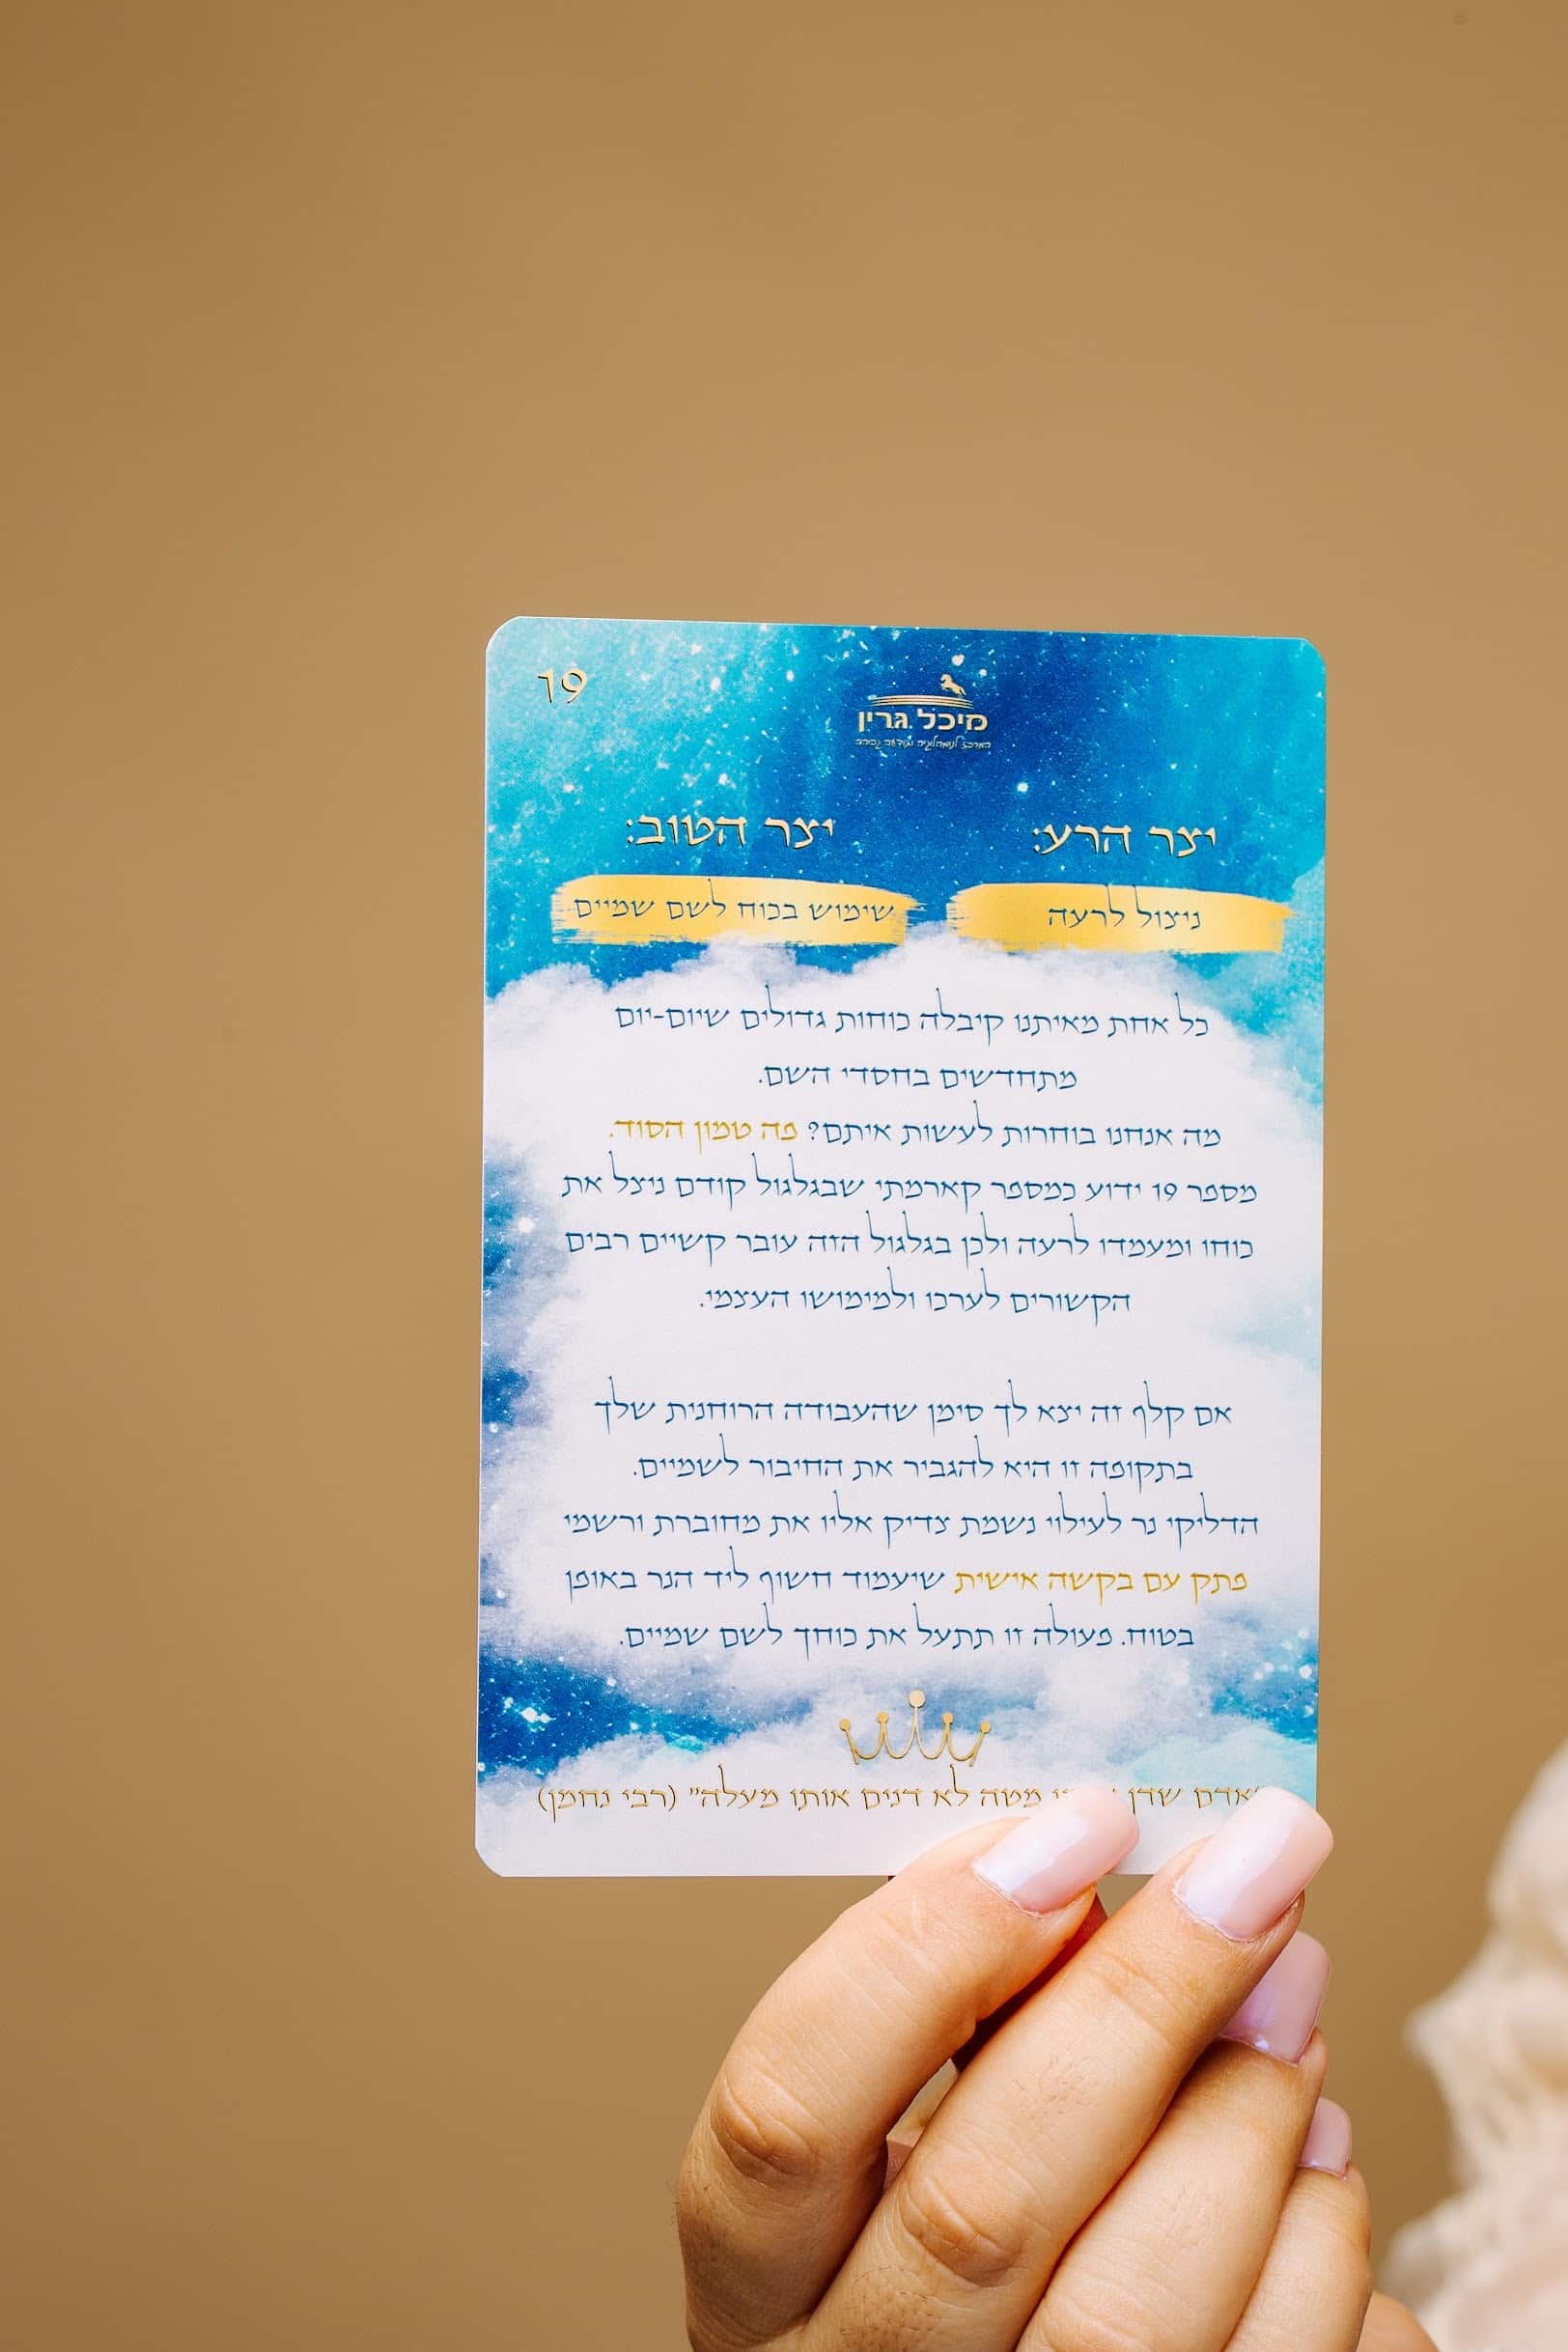 19
מיכל גרין
יצר הרע:
יצר הטוב:
ניצול לרעה
שימוש בכוח לשם שמיים
כל אחת מאיתנו קיבלה כוחות גדולים שיום-יום
מתחדשים בחסדי השם.
מה אנחנו בוחרות לעשות איתם? פה טמון הסוד.
מספר 19 ידוע כמספר קארמתי שבגלגול קודם ניצל את
כוחו ומעמדו לרעה ולכן בגלגול הזה עובר קשיים רבים
הקשורים לערכו ולמימושו העצמי.
אם קלף זה יצא לך סימן שהעבודה הרוחנית שלך
בתקופה זו היא להגביר את החיבור לשמיים.
הדליקי נר לעילוי נשמת צדיק אליו את מחוברת ורשמי
פתק עם בקשה אישית שיעמוד חשוף ליד הנר באופן
בטוח. פעולה זו תתעל את כוחך לשם שמיים.
"אדם שדן מטה לא דנים אותו מעלה" (רבי נחמן)